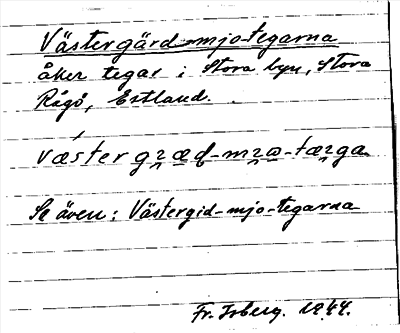 Västergärd-mjo-tegarna
åker tegar i Stora byn, Stora
Rågö, Estland.
Se även: Västergid-mjo-tegarna
Fr. Isberg. 1944.